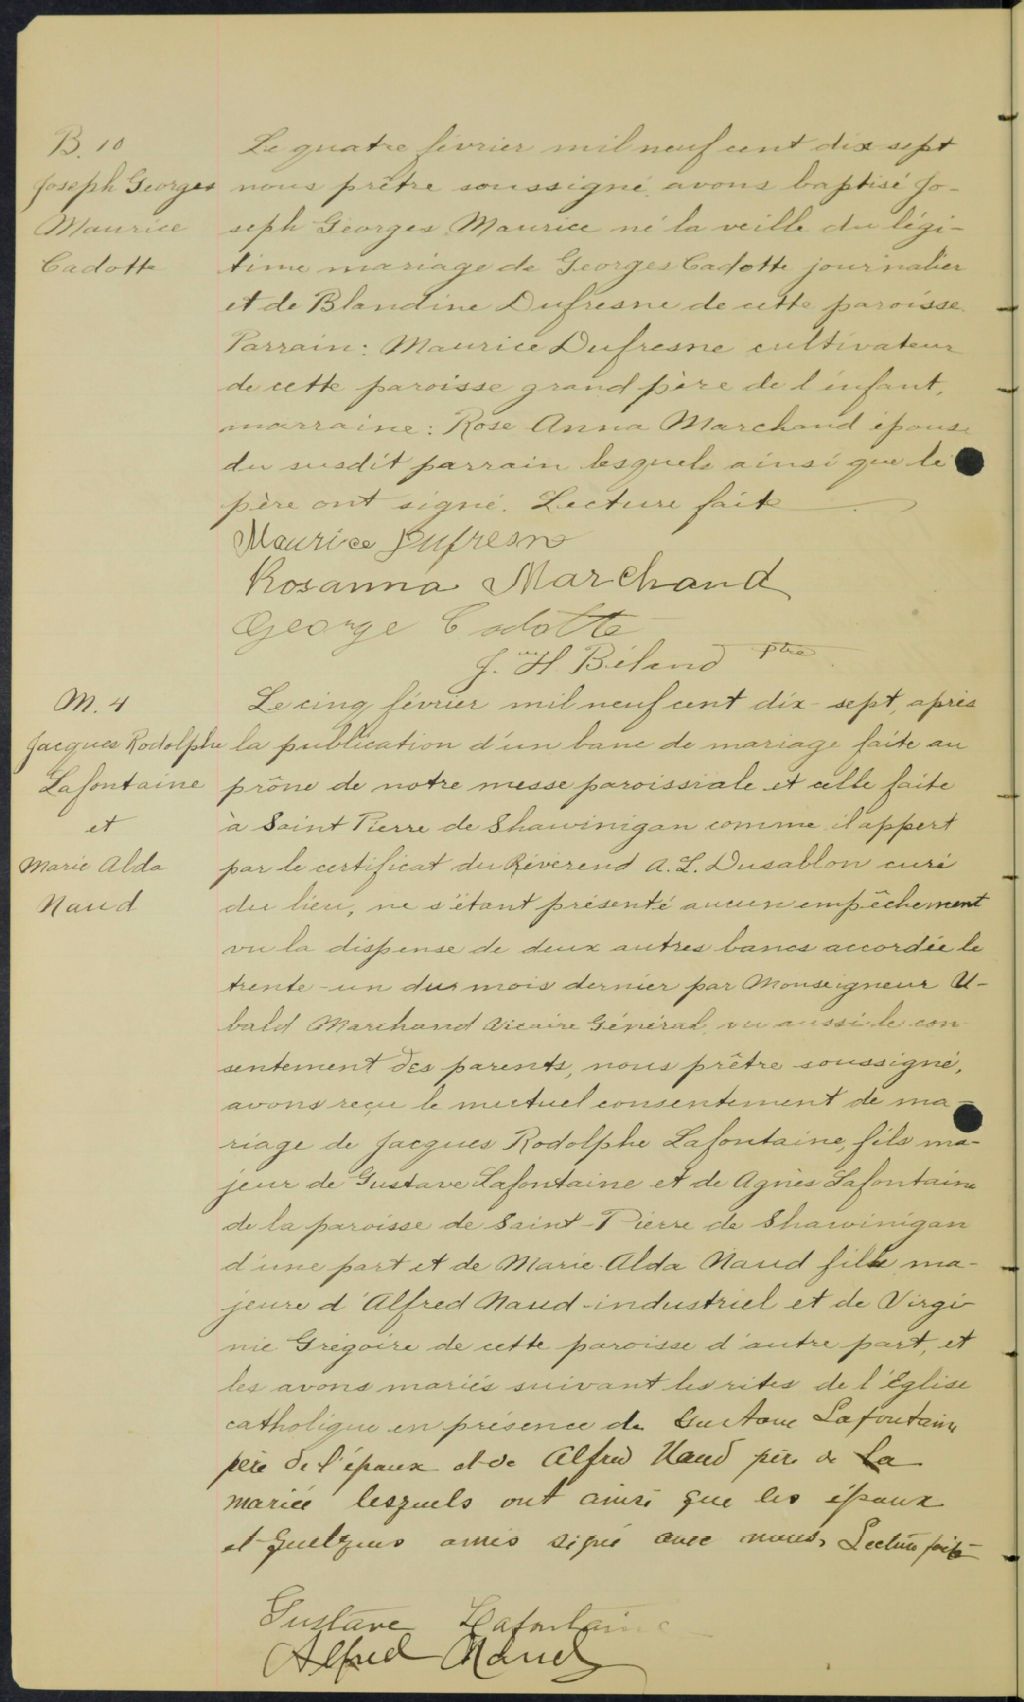 B. 10
Joseph Georges
Maurice
Cadotte
Le quatre février mil neuf cent dix sept
nous prêtre soussigné avons baptisé Jo-
seph Georges Maurice né la veille du légi-
time mariage de Georges Cadotte journalier
et de Blandine Dufresne de cette paroisse.
Parrain: Maurice Dufresne cultivateur
de cette paroisse grand père de l'enfant,
marraine: Rose Anna Marchand épouse
du susdit parrain lesquels ainsi que le
père ont signé. Lecture faite
Maurice Dufresne
Rosanna Marchand
George Cadotte
J. H Béland ptre
M. 4
Jacques Rodolphe
Lafontaine
et
Marie Alda
Naud
Le cinq février mil neuf cent dix-sept, après
la publication d'un banc de mariage faite au
prône de notre messe paroissiale et celle faite
à Saint Pierre de Shawinigan comme il appert
par le certificat du Révérend A. L. Dusablon curé
du lieu, ne s'étant présenté aucun empêchement
vu la dispense de deux autres bancs accordée le
trente-un du mois dernier par Monseigneur U-
bald Marchand Vicaire Général, vu aussi le con
sentement des parents, nous prêtre soussigné,
avons reçu le mutuel consentement de ma-
riage de Jacques Rodolphe Lafontaine, fils ma-
jeur de Gustave Lafontaine et de Agnès Lafontaine
de la paroisse de Saint-Pierre de Shawinigan
d'une part et de Marie-Alda Naud fille ma-
jeure d'Alfred Naud-industriel et de Virgi-
nie Grégoire de cette paroisse d'autre part, et
les avons mariés suivant les rites de l'Eglise
catholique en présence de Gustave Lafontaine
père de l'époux et de Alfred Naud père de la
mariée lesquels ont ainsi que les époux
et quelques amis signé avec nous, Lecture faite
Gustave Lafontaine
Alfred Naud